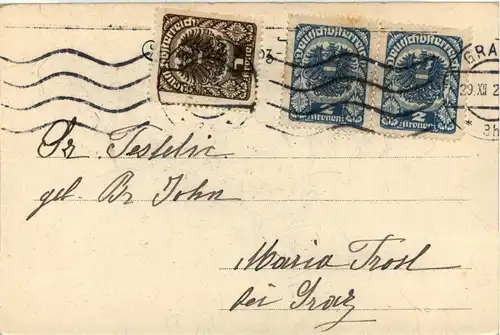 Deutschösterreich
1
Krone
Deutschösterreich
2
Kronen
Deutschösterreich
2
Kronen
GRA
29.XII 2
* 3h
geb. Br John
Maria Trost
bei Graz